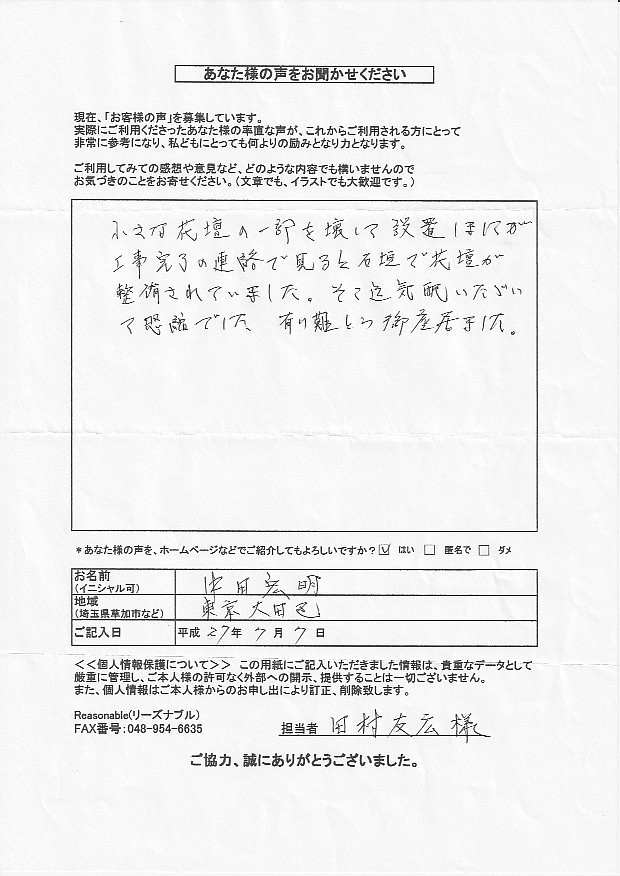 あなた様の声をお聞かせください
現在、「お客様の声」を募集しています。
実際にご利用くださったあなた様の率直な声が、これからご利用される方にとって
非常に参考になり、私どもにとっても何よりの励みとなり力となります。
ご利用してみての感想や意見など、どのような内容でも構いませんので
お気づきのことをお寄せください。(文章でも、イラストでも大歓迎です。)
小さな花壇の一部を壊して設置
工事完了の連絡で見ると石垣で花壇が
整備されていました。そこ迄気配いただい
て恐縮でした 有り難とう御座居ました。
*あなた様の声を、ホームページなどでご紹介してもよろしいですか? ☑ はい □ 匿名で □ ダメ
お名前
(イニシャル可) 田宏明
地域
(埼玉県草加市など) 東京大田区
ご記入日 平成 27年 7月 7日
<<個人情報保護について>> この用紙にご記入いただきました情報は、貴重なデータとして
厳重に管理し、ご本人様の許可なく外部への開示、提供することは一切ございません。
また、個人情報はご本人様からのお申し出により訂正、削除致します。
Reasonable(リーズナブル)
FAX番号:048-954-6635 担当者 田村友広様
ご協力、誠にありがとうございました。